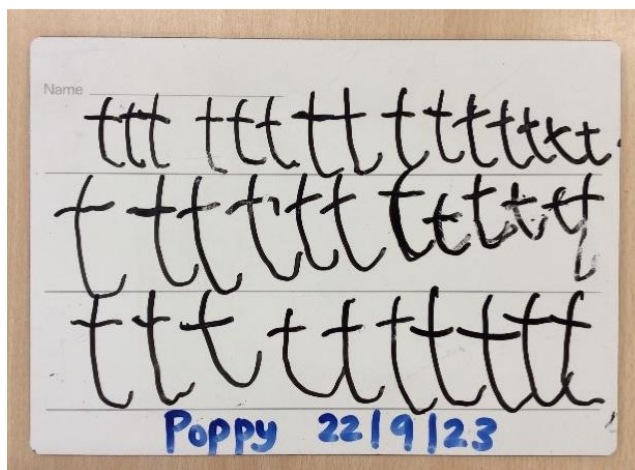 Name
t t t t t t t t t t t t t t t
t t t t t t t t t t t t
t t t t t t t t t t
Poppy 22/9/23